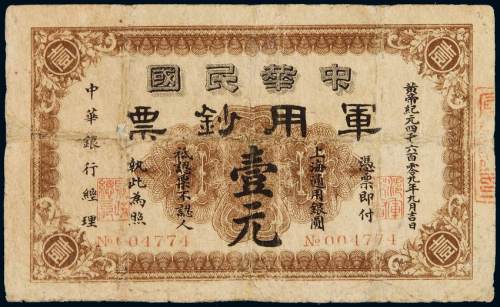 中華民國
軍用鈔票
黃帝紀元四千六百零九年九月吉日
憑票即付
上海通用銀圓
壹元
祗認票不認人
執此為照
中華銀行經理
No 004774
No 004774